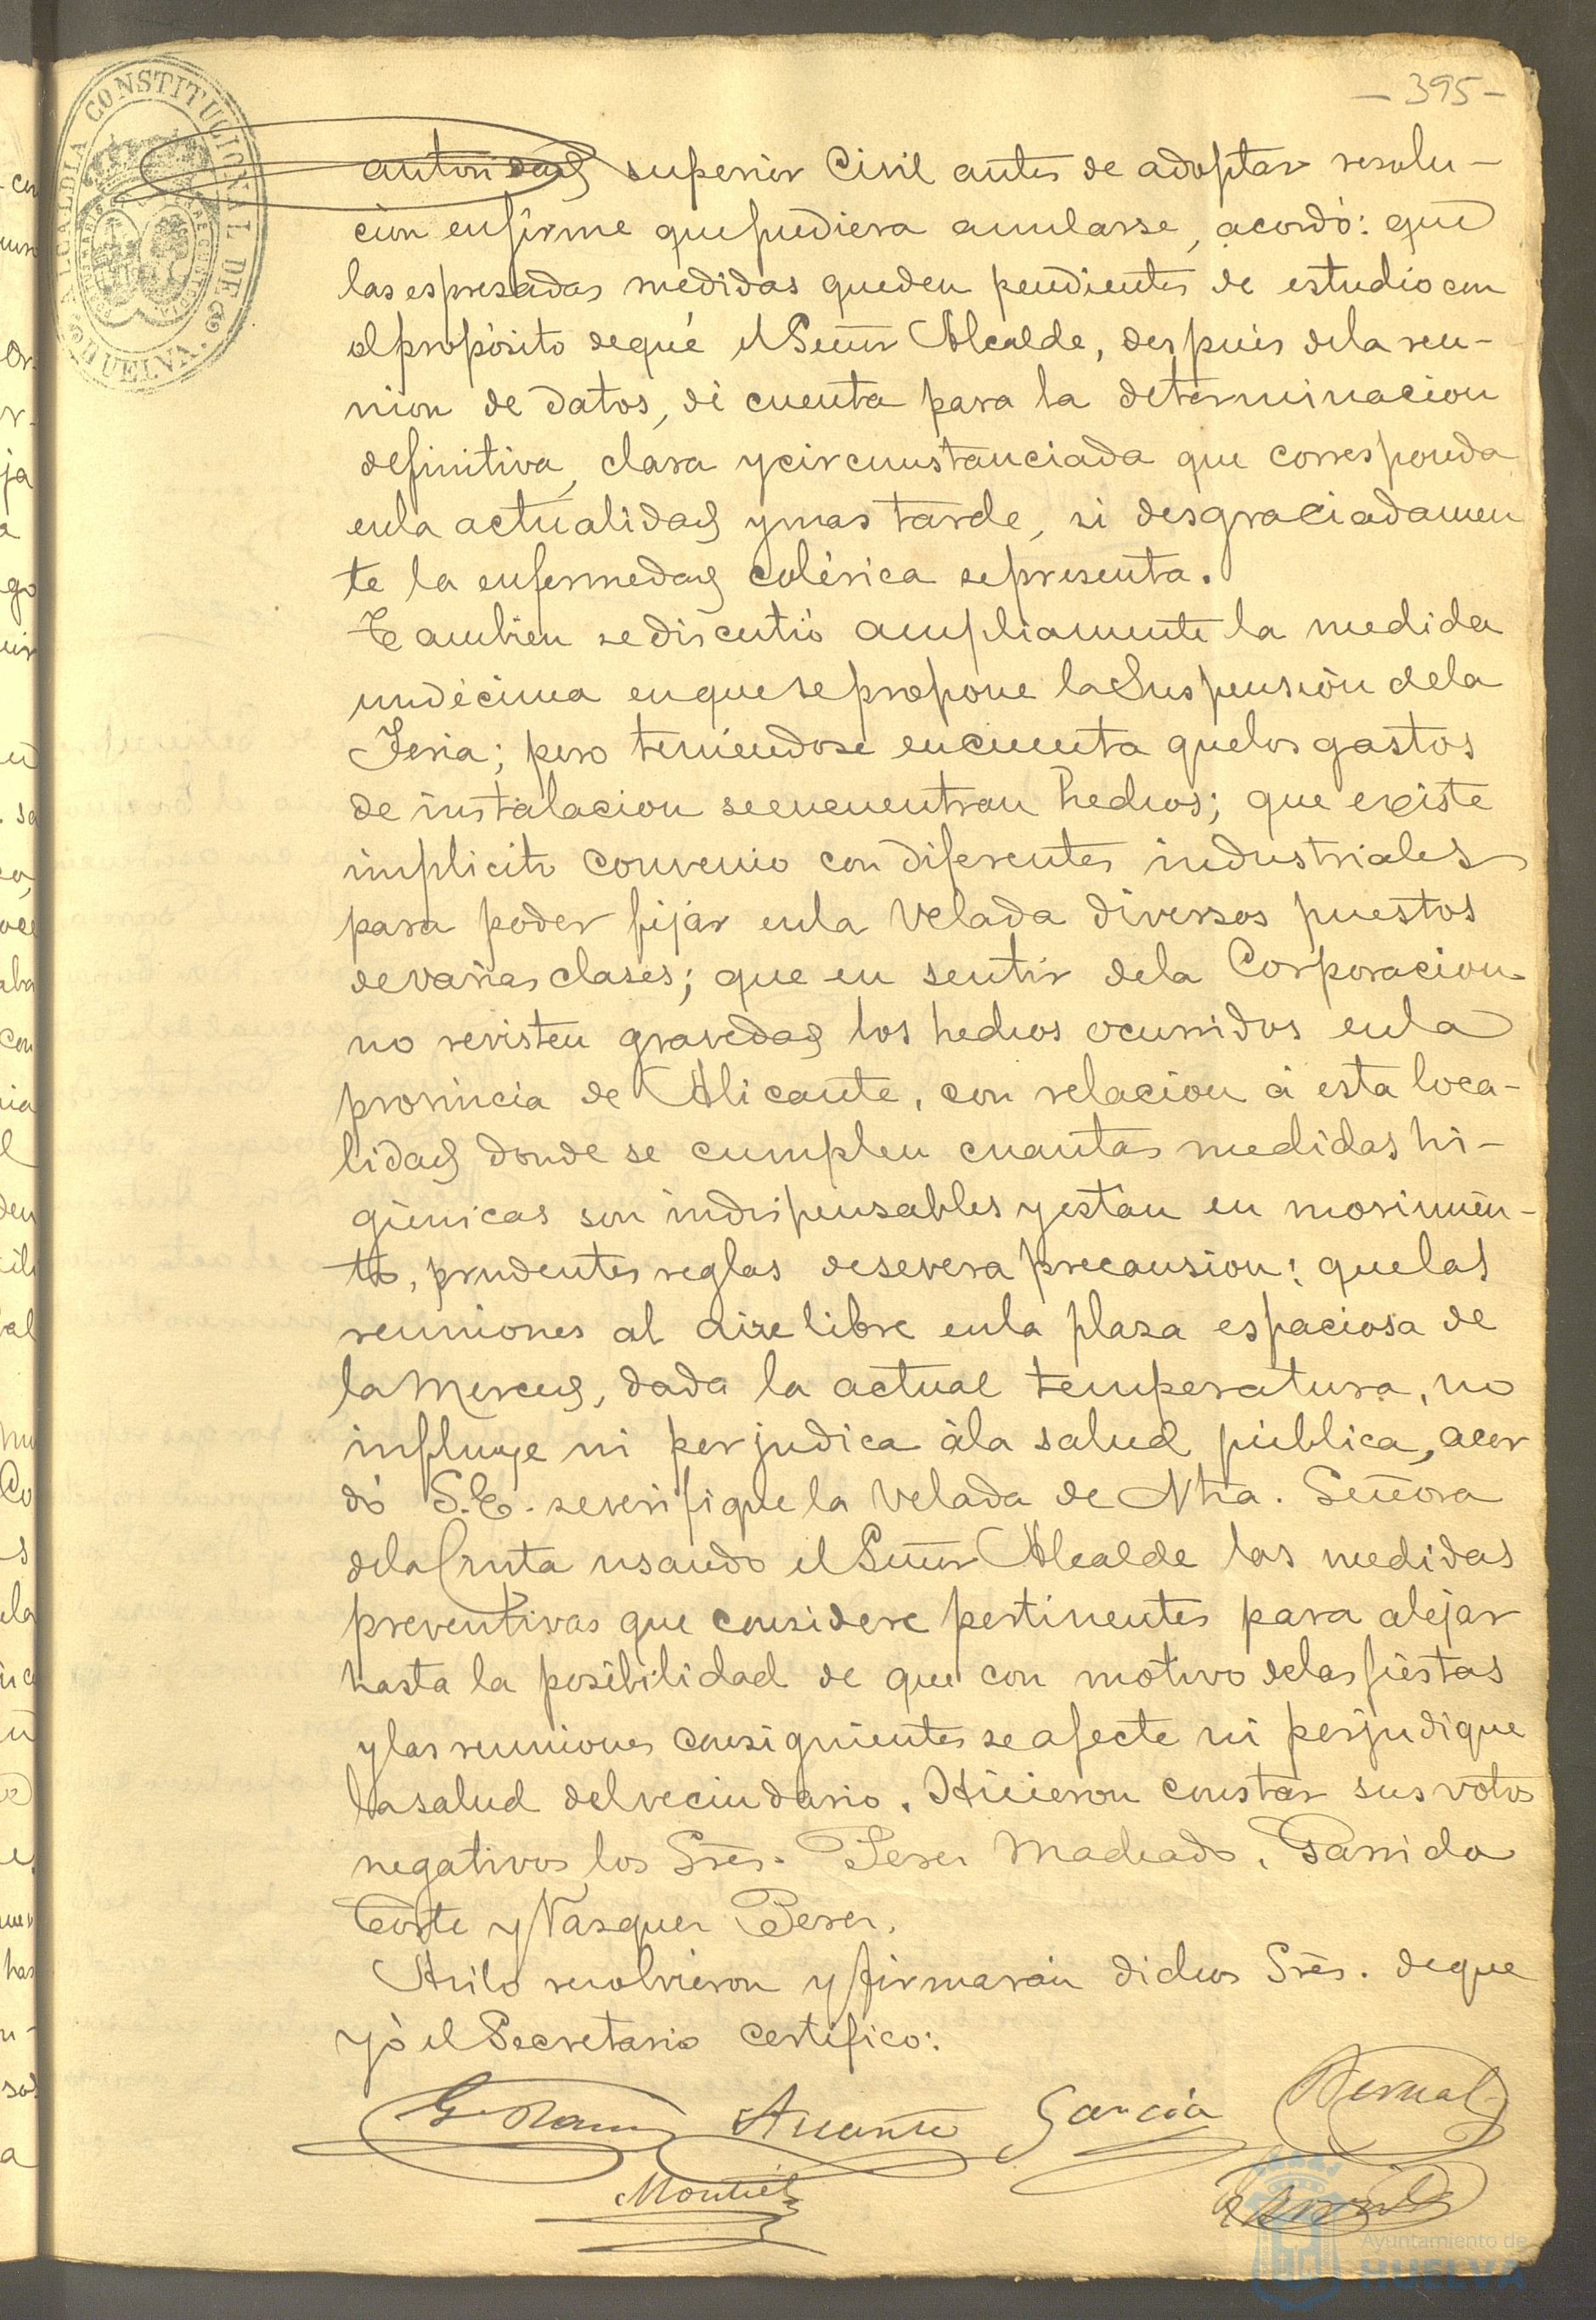 -395-
ALCALDIA CONSTITUCIONAL DE HUELVA.
autoridad superior Civil antes de adoptar resolu-
cion enfirme quepudiera anularse, acordó: que
las espresadas medidas queden pendientes de estudio con
el propósito dequé el Señor Alcalde, despues dela reu-
nion de datos, dé cuenta para la determinacion
definitiva, clara y circunstanciada que corresponda
enla actualidad y mas tarde, si desgraciadamen
te la enfermedad colérica sepresenta.
Tambien sediscutió ampliamente la medida
undécima enquese propone la Suspensión dela
Feria; pero teniendose encuenta quelos gastos
de instalacion seencuentran hechos; que existe
implicito convenio con diferentes industriales
para poder fijar enla Velada diversos puestos
devarias clases; que en sentir dela Corporacion
no revisten gravedad los hechos ocurridos enla
provincia de Alicante, con relacion á esta loca-
lidad donde se cumplen cuantas medidas hi-
giénicas son indispensables y están en movimien-
to, prudentes reglas desevera precausion: quelas
reuniones al aire libre enla plaza espaciosa de
la Merced, dada la actual temperatura, no
influye ni perjudica ála salud pública, acor
dó S.E. severifique la Velada de Ntra. Señora
dela Cinta usando el Señor Alcalde las medidas
preventivas que considere pertinentes para alejar
hasta la posibilidad de que con motivo delas fiestas
y las reuniones consiguientes se afecte ni perjudique
la salud del vecindario. Hicieron constar sus votos
negativos los Sres. Perez Machado, Garrido
Corte y Vazquez Perez.
Asilo resolvieron y firmarán dichos Sres. deque
yó el Secretario certifico:
García Bernal
Montiel
Ayuntamiento de
HUELVA